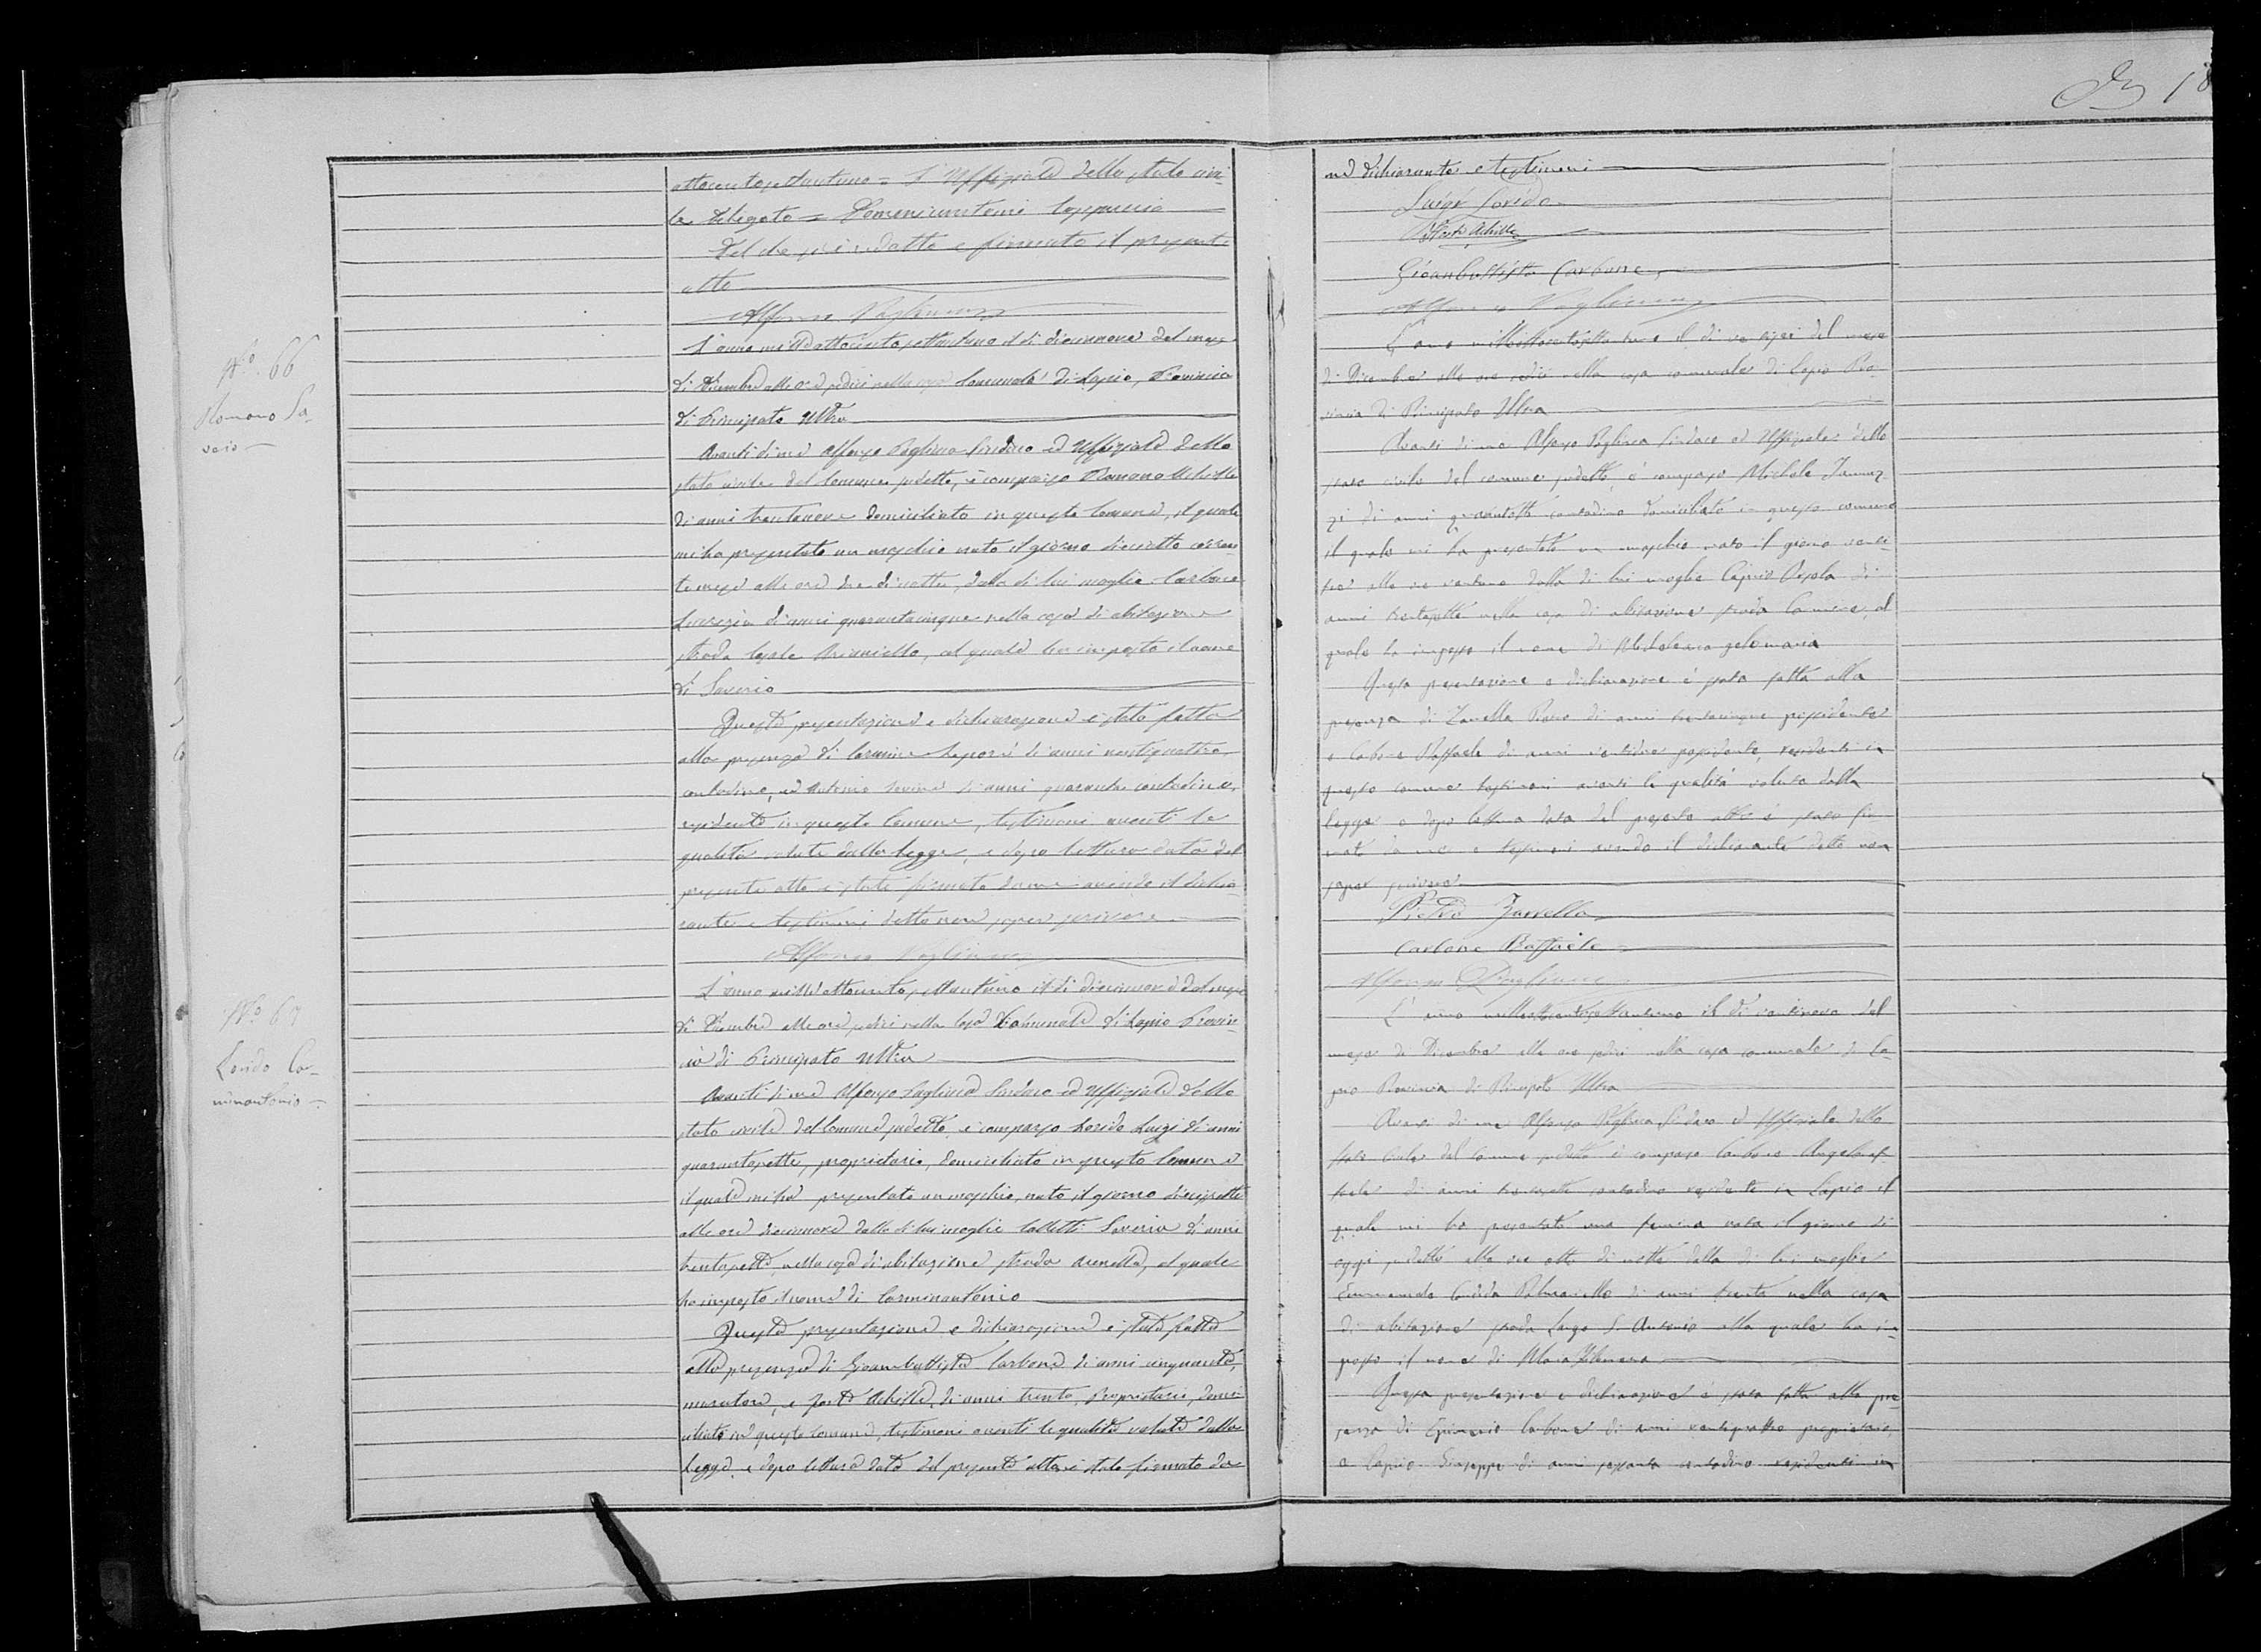 ottocentosettantuno = L'Uffiziale dello stato civi-
le delegato =
Del che si è redatto e firmato il presente
atto
Alfonso Pagliuca
No. 66
Romano Sa-
verio
L'anno mille ottocentosettantuno il dì diecinnove del mese
di Dicembre alle ore sedici nella casa Comunale di Lapio, Provincia
di Principato Ultra
Avanti di me Alfonso Pagliuca Sindaco ed Uffiziale dello
stato civile del Comune sudetto, è comparso Romano
di anni trentanove domiciliato in questo Comune, il quale
mi ha presentato un maschio nato il giorno dieciotto corren-
te mese alle ore tre di notte, dalla di lui moglie Carbone
Lucrezia di anni quarantacinque nella casa di abitazione
strada, al quale ha imposto il nome
di Saverio
Questa presentazione e dichiarazione è stata fatta
alla presenza di Carmine di anni ventiquattro
contadino, ed Antonio di anni quaranta contadino,
residenti in questo Comune, testimoni aventi le
qualità volute dalla legge, e dopo lettura data del
presente atto è stato firmato da me avendo il dichia-
rante e testimoni detto non saper scrivere
Alfonso Pagliuca
No. 67
Lorido Car-
minantonio
L'anno mille ottocentosettantuno il dì diecinnove del mese
di Dicembre alle ore sedici nella casa Comunale di Lapio Provin-
cia di Principato Ultra
Avanti di me Alfonso Pagliuca Sindaco ed Uffiziale dello
stato civile del Comune sudetto, è comparso Lorido Luigi di anni
quarantasette, proprietario, domiciliato in questo Comune
il quale mi ha presentato un maschio, nato il giorno diecisette
alle ore diecinnove dalla di lui moglie Colletti Saveria di anni
trentasette, nella casa di abitazione strada Arenella, al quale
ha imposto il nome di Carminantonio
Questa presentazione e dichiarazione è stata fatta
alla presenza di Gioambattista Carbone di anni cinquanta,
muratore, e Forte Achille, di anni trenta, proprietario, domi-
ciliati in questo Comune, testimoni aventi le qualità volute dalla
legge, e dopo lettura data del presente atto è stato firmato da
18
me dichiarante e testimoni
Luigi Lorido
Forte Achille
Gioanbattista Carbone
Alfonso Pagliuca
L'anno milleottocentosettantuno il dì ventisei del mese
di Dicembre alle ore sedici nella casa comunale di Lapio Pro-
vincia di Principato Ultra
Avanti di me Alfonso Pagliuca Sindaco ed Uffiziale dello
stato civile del comune sudetto, è comparso Michele Iannuz-
zi di anni quarantotto contadino domiciliato in questo comune
il quale mi ha presentato un maschio nato il giorno venti-
tre alle ore ventuno dalla di lui moglie Caprio di
anni trentasette nella casa di abitazione strada, al
quale ha imposto il nome di
Questa presentazione e dichiarazione è stata fatta alla
presenza di Zarrella Pietro di anni trentacinque possidente
e Carbone Raffaele di anni ventidue possidente, residenti in
questo comune testimoni aventi le qualità volute dalla
legge e dopo lettura data del presente atto è stato fir-
mato da me e testimoni avendo il dichiarante detto non
saper scrivere
Pietro Zarrella
Carbone Raffaele
Alfonso Pagliuca
L'anno milleottocentosettantuno il dì ventinove del
mese di Dicembre alle ore sedici nella casa comunale di La-
pio Provincia di Principato Ultra
Avanti di me Alfonso Pagliuca Sindaco ed Uffiziale dello
stato civile del Comune sudetto è comparso Carbone Angelraf-
faele di anni trentasette contadino residente in Lapio il
quale mi ha presentato una femina nata il giorno di
oggi sudetto alle ore otto di notte dalla di lui moglie
di anni trenta nella casa
di abitazione strada Largo S. Antonio alla quale ha im-
posto il nome di Maria Filomena
Questa presentazione e dichiarazione è stata fatta alla pre-
senza di Carbone di anni ventiquattro proprietario,
e Caprio Giuseppe di anni sessanta contadino residenti in